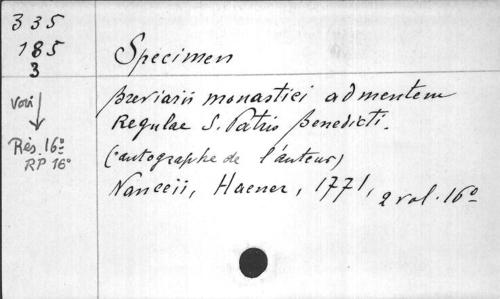 335
185
3
Voir
Rés. 16º
RP 16º
Specimen
breviarii monastici ad mentem
Regulae S. Patris Benedicti.
(autographe de l'auteur)
Nanceii, Haener, 1771, 2 vol. 16º